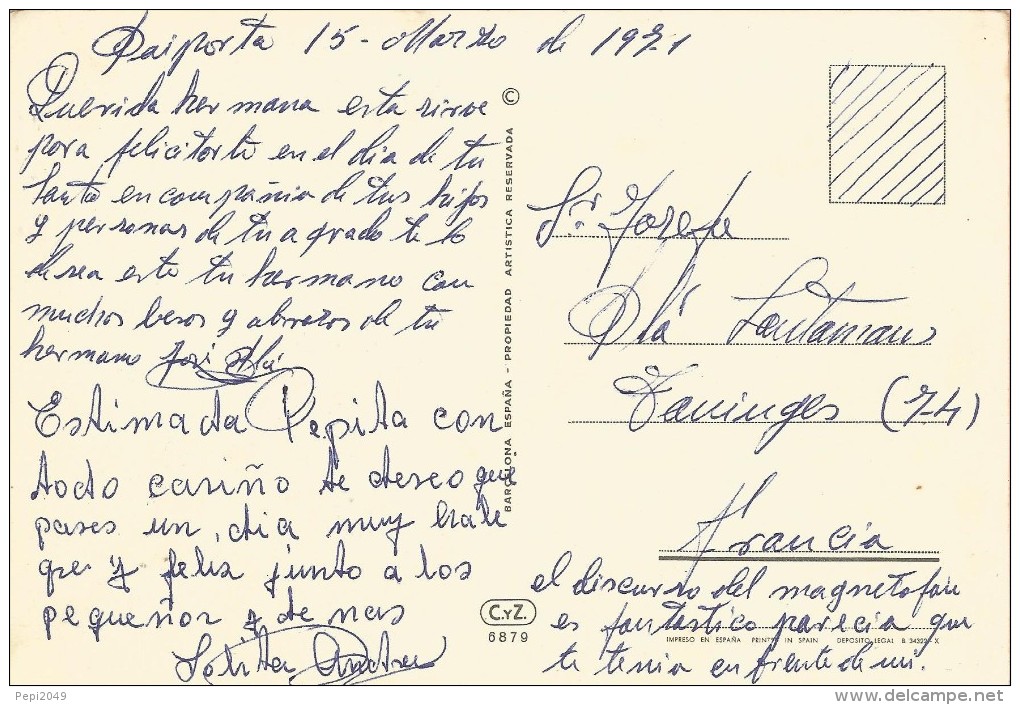 Paiporta 15 - Marzo de 1971
Querida hermana esta sirve
para felicitarte en el dia de tu
santo en compañia de tus hijos
y personas de tu agrado te lo
desea este tu hermano con
muchos besos y abrazos de tu
hermano José Plá
Estimada Pepita con
todo cariño te deseo que
pases un dia muy
que y feliz junto a los
pequeños y de mas
Lolita Andreu
©
BARCELONA ESPAÑA - PROPIEDAD ARTISTICA RESERVADA
C.y Z.
6879
Sra Josefa
Plá Santamans
Taninges (74)
Francia
el discurso del magnetofon
es fantastico parecia que
IMPRESO EN ESPAÑA PRINTED IN SPAIN DEPOSITO LEGAL B. - X
te tenia en frente de mi.
Pepi2049
www.delcampe.net